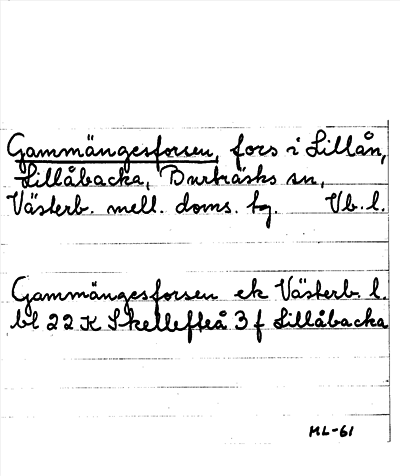 Gammängesforsen, fors i Lillån,
Lillåbacka, Burträsks sn,
Västerb. mell. doms. tg. Vb. l.
Gammängesforsen ek Västerb. l.
bl 22 K Skellefteå 3 f Lillåbacka
ML-61